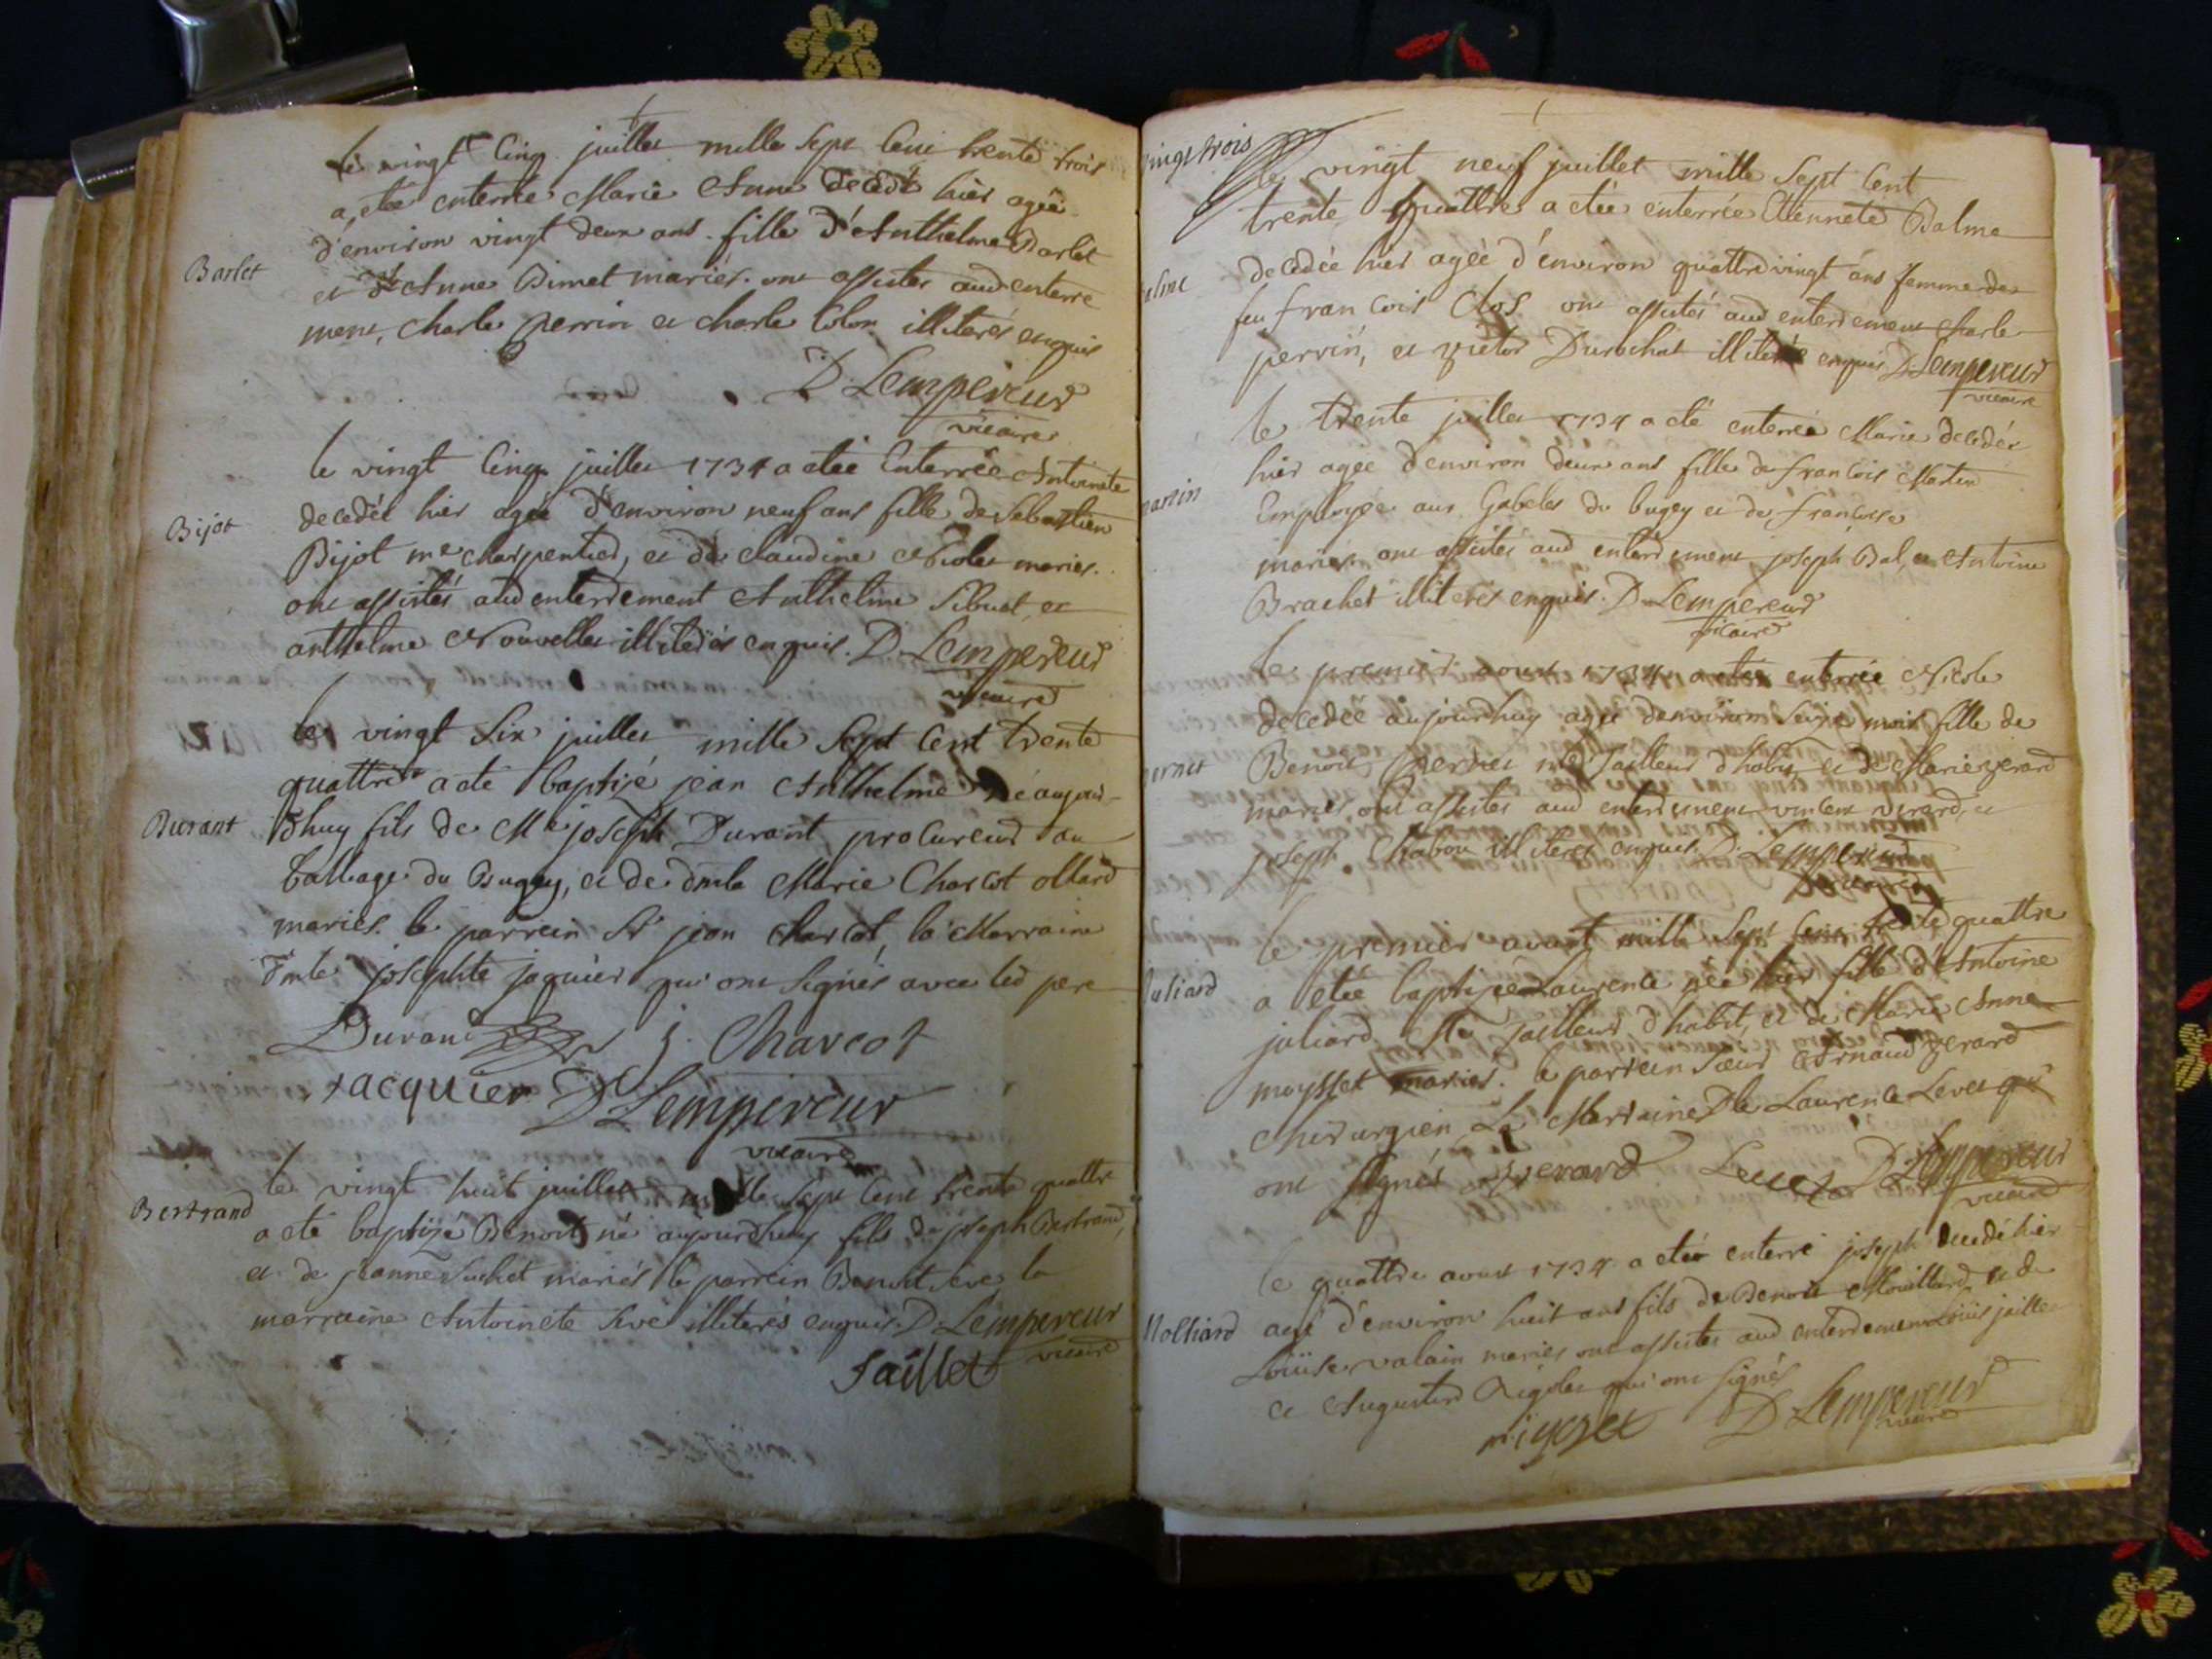 le vingt cinq juillet mille sept cent trente trois
a etée enterrée Marie Anne decedé hier agée
d'environ vingt deux ans fille d'Anthelme Barlet
Barlet
et d'Anne Bimet mariés. ont assistes aud enterre
ment, Charle Perrin et Charle Colon illiterés enquis
D. Lempereur
vicaire
le vingt cinq juillet 1734 a etée Enterrée Antoinete
decedée hier agée d'environ neuf ans fille de Sebastien
Bijot
Bijot me charpentier, et de Claudine Nicolet mariés.
ont assistés aud enterrement Anthelme Sibuet, et
anthelme Nouvellet illiterés enquis. D. Lempereur
vicaire
le vingt six juillet mille sept cent trente
quattre a eté baptizé jean Anthelme né aujour-
Durant
dhuy fils de Me joseph Durant procureur au
balliage du Bugey, et de dmle Marie Charcot ollard
mariés. le parrein Sr jean charcot, la Marraine
dmle josephte jaquier qui ont signés avec led pere
Durand J. Charcot
Jacquier D. Lempereur
vicaire
le vingt huit juillet mille sept cent trente quattre
Bertrand
a eté baptizé Benoit né aujourdhuy fils de joseph Bertrand,
et de jeanne Suchet mariés le parrein Benoit seve, la
marraine Antoinete seve illiterés enquis. D. Lempereur
vicaire
Jaillet
vingt trois
le vingt neuf juillet mille sept cent
trente quattre a etée enterrée Etiennete Balme
decedée hier agée d'environ quattre vingt ans femme de
elme
feu francois Clos ont assistés aud enterrement charle
perrin, et victor Durochat illiterés enquis D. Lempereur
vicaire
le trente juillet 1734 a eté enterrée Marie decedée
hier agée d'environ deux ans fille de francois Martin
martin
Employée aux Gabeles du bugey et de francoise
mariés. ont assistés aud enterrement joseph Bal, et Antoine
Brachet illiterés enquis. D. Lempereur
vicaire
le premier aoust 1734 a etee enterrée Nicole
decedée aujourdhuy agée denviron seize mois fille de
ernet
Benoit Pernet me Tailleur d'habit, et de Marie gerard
mariés, ont assistes aud enterrement vincent gerard, et
joseph Chabou illiteres enquis. D. Lempereur
vicaire
le premier avout mille sept cent trente quattre
juliard
a etée baptizée Laurence née hier fille d'Antoine
juliard Me Tailleur d'habit, et de Marie Anne
moysset mariés. le parrein sieur Arnaud gerard
chirurgien La Marraine Dle Laurence Levet qui
ont signés gerard Levet D. Lempereur
vicaire
le quattre aoust 1734 a etée enterré joseph decedé hier
Molliard
agé d'environ huit ans fils de Benoit Mouillard, et de
Louise valain mariés ont assistes aud enterrement Louis jaillet
et Augustin Rigolet qui ont signés
rigolet D. Lempereur
vicaire